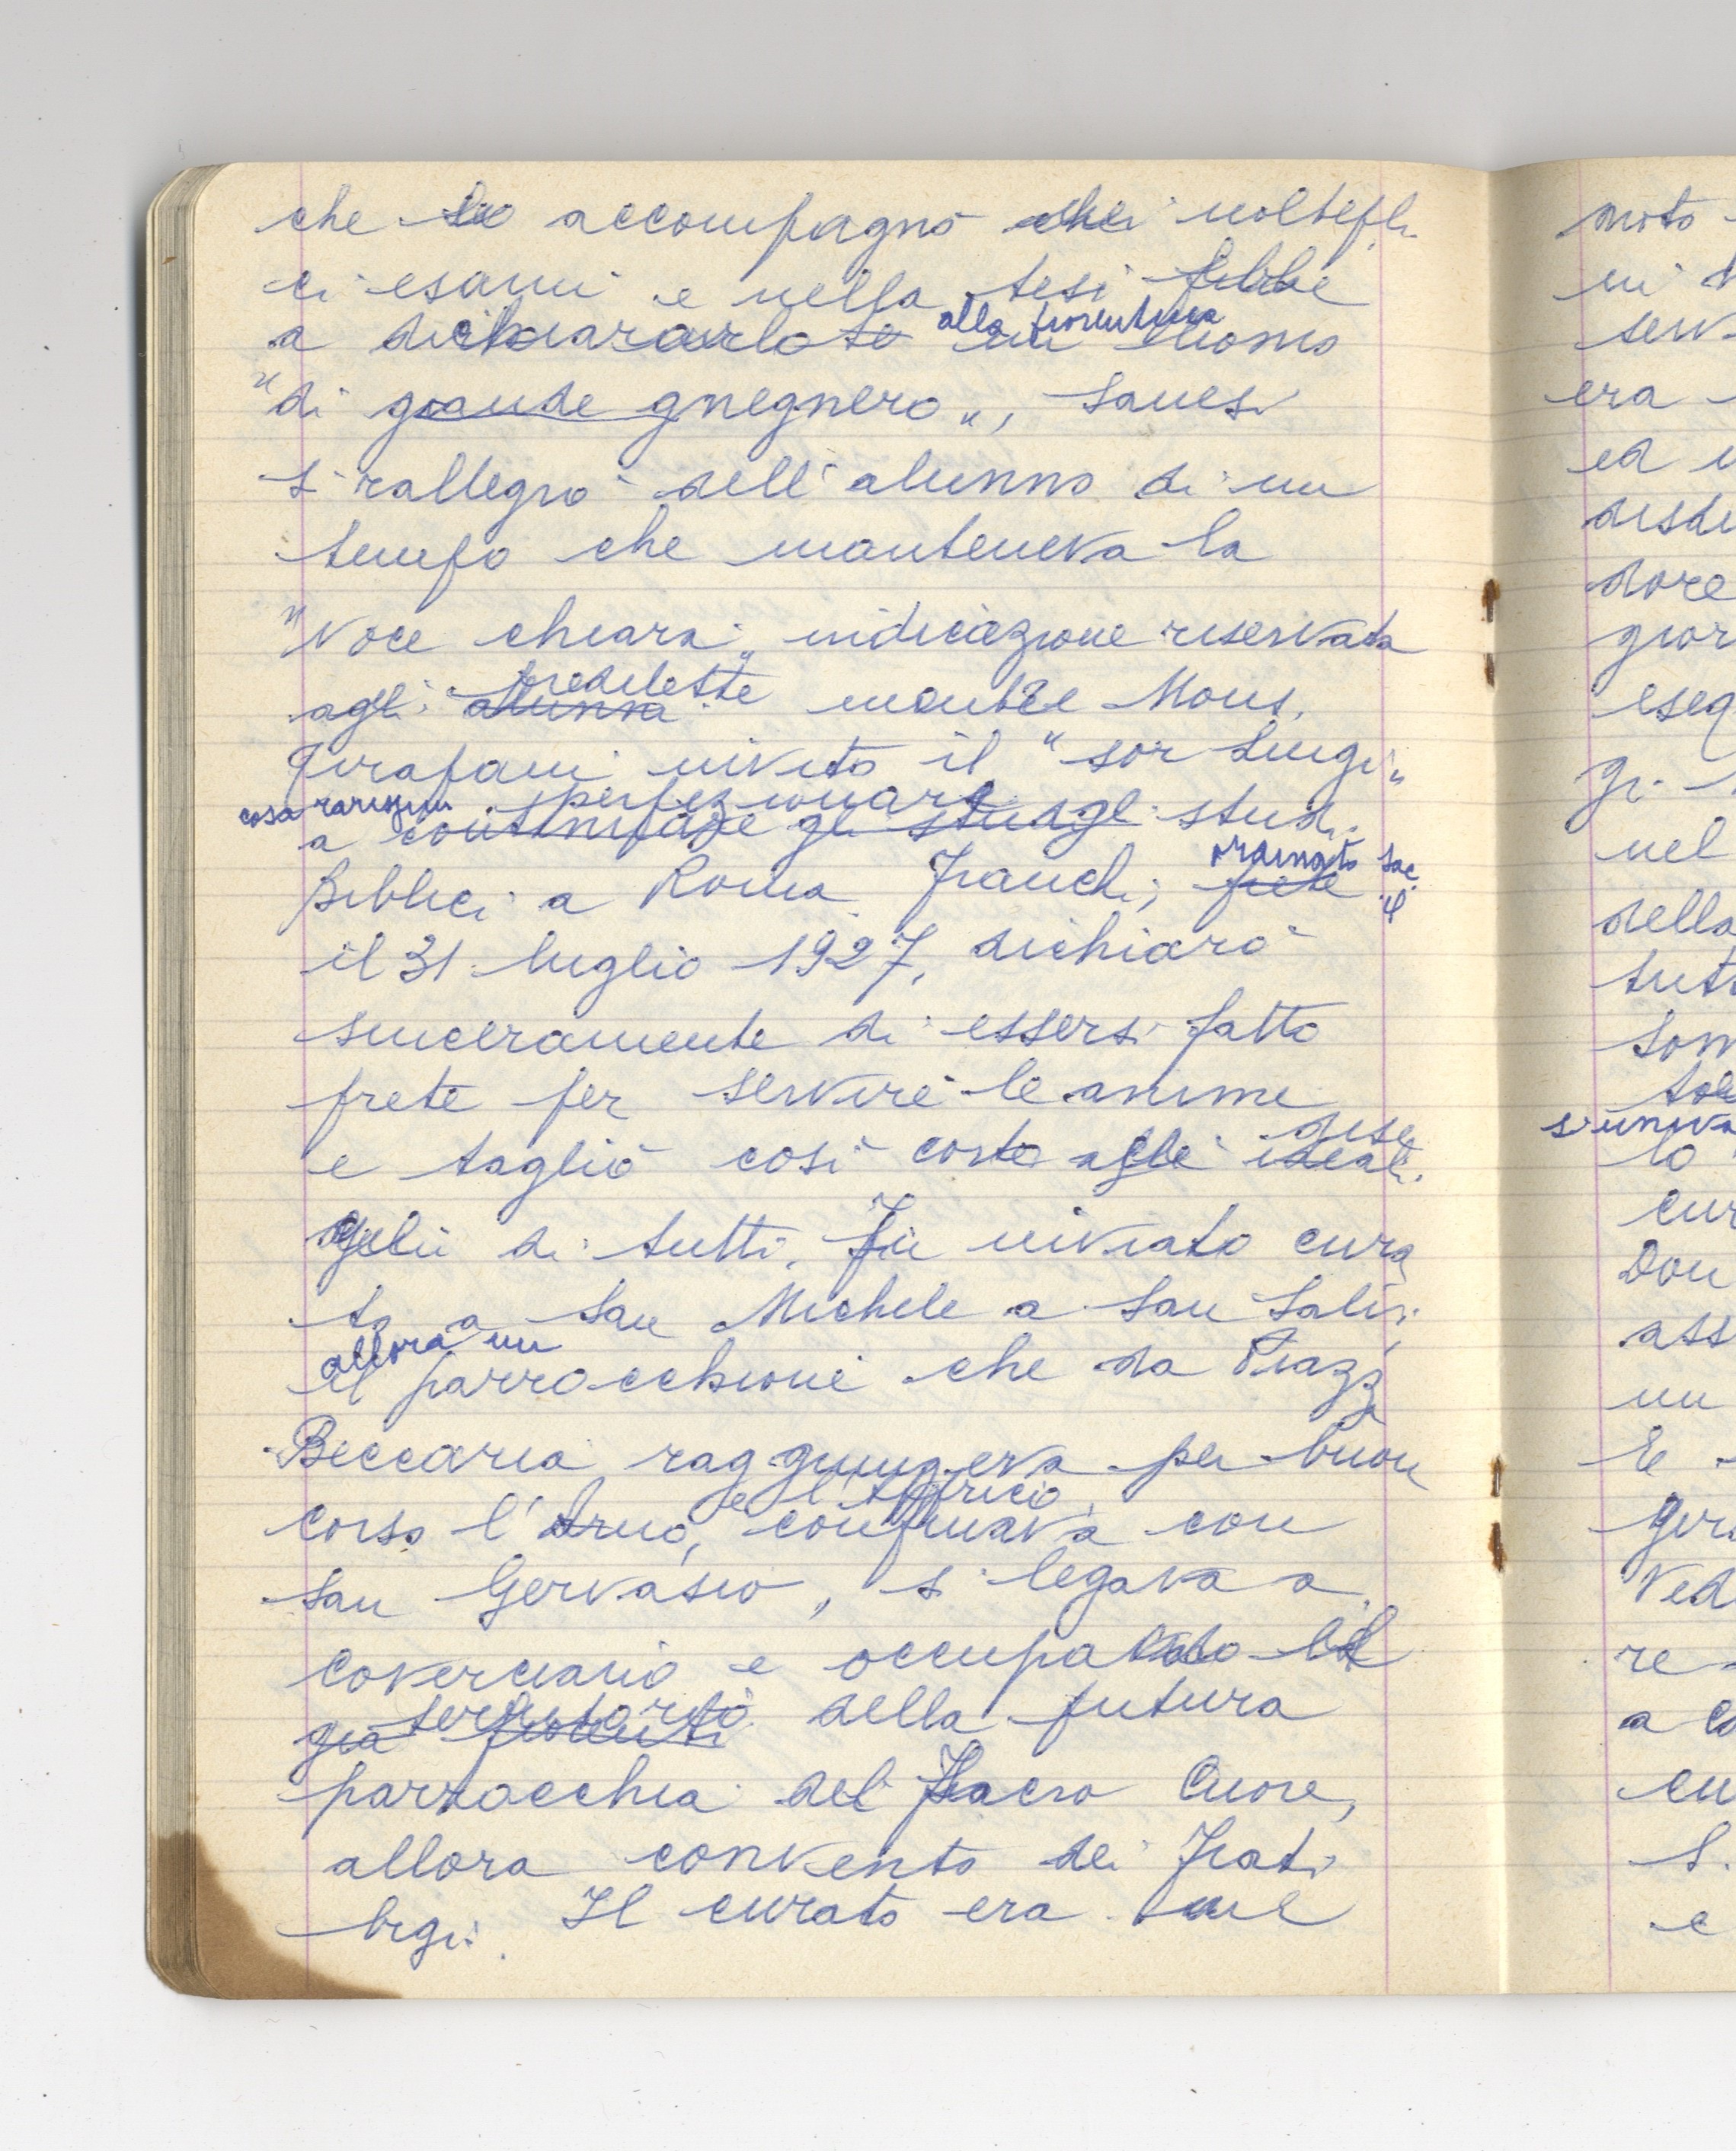 che lo accompagnò nei moltepli
ci esami e nella tesi ebbe
alla fiorentina
a dichiararlo un uomo
"di grande gnegnero", Sanesi
si rallegrò dell'alunno di un
tempo che manteneva la
"Voce chiara" indicazione riservata
predilette
agli alunni mentre Mons.
invitò il "sor Luigi"
cosa rarissima perfezionare
a gli studi
ordinato sac.
Biblici a Roma. Franchi, prete il
il 31 luglio 1927, dichiarò
sinceramente di essersi fatto
prete per servire le anime
e tagliò così corto agli ideali
di tutti. Fu inviato cura
to a San Michele a San Salvi,
allora un
il parrocchione che da Piazza
Beccaria raggiungeva per buon
e l'Affrico
corso l'Arno, confinava con
San Gervasio, si legava a
Coverciano e occupava il
territorio
già della futura
parrocchia del Sacro Cuore,
allora convento dei Frati
bigi. Il curato era
moto
in
serv
era
ed
disdi
dore
gior
eseq
gi.
nel
della
tutt
som
s'univa
lo
cur
Don
ass
un
E
Ved
re
a
cu
S.
e